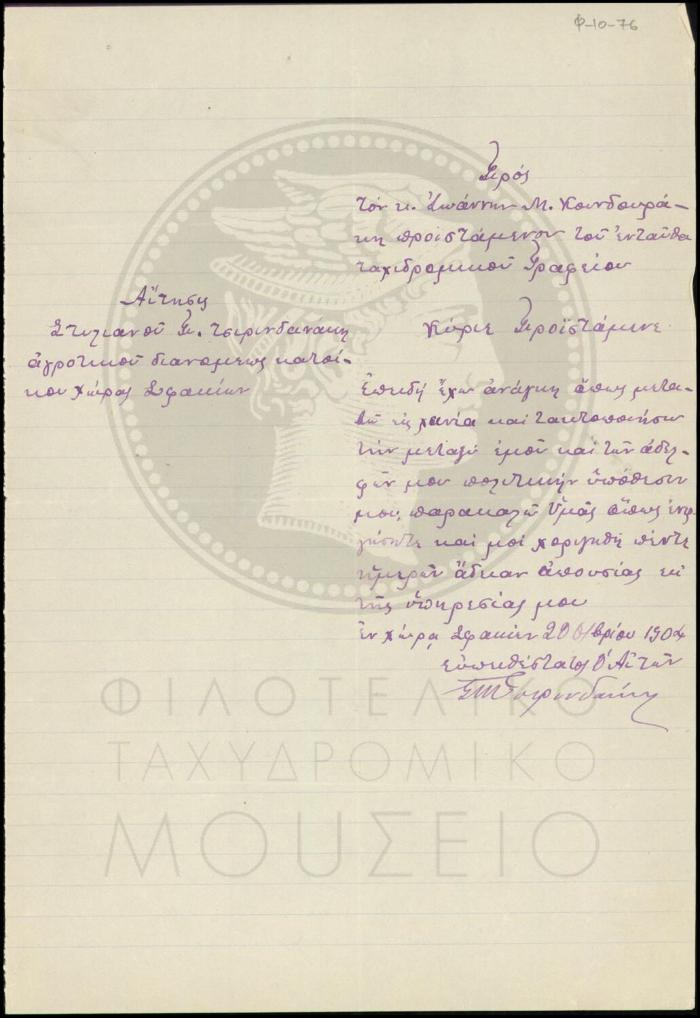 Φ-10-76
Πρός
τόν κ. Ἰωάννην Μ. Κουνδουρά-
κη προϊστάμενον τοῦ ἐνταῦθα
ταχιδρομικοῦ Γραφείου
Αἴτησις
Στυλιανοῦ
ἀγροτικοῦ διανομέως κατοί-
κου Χώρας Σφακίων
Κύριε Προϊστάμενε
Ἐπειδή ἔχω ἀνάγκη ὅπως μετα-
βῶ εἰς χανία και τακτοποιήσω
την μεταξύ ἐμοῦ και τῶν ἀδελ-
φῶν μου πολιτικήν ὑπόθεσιν
μου, παρακαλῶ Ὑμᾶς ὅπως ἐνερ-
γήσητε και μοι χοριγηθῆ πέντε
ἡμερῶν ἄδειαν ἀπουσίας ἐκ
τῆς ὑπηρεσίας μου
ἐν χώρᾳ Σφακίων 20 1904
εὐπειθέστατος Ὁ Αἰτῶν
ΦΙΛΟΤΕΛΙΚΟ
ΤΑΧΥΔΡΟΜΙΚΟ
ΜΟΥΣΕΙΟ